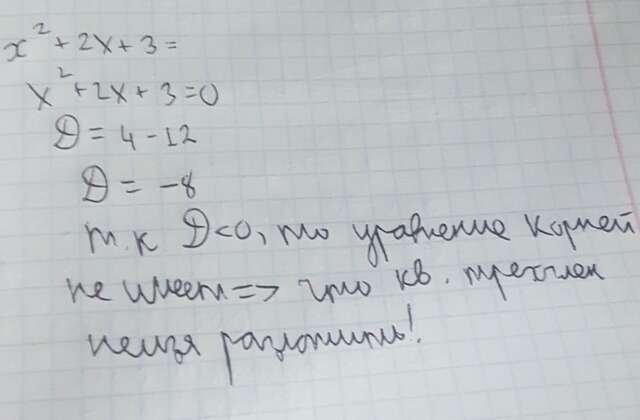 x² + 2x + 3 =
x² + 2x + 3 = 0
D = 4 - 12
D = -8
т.к D<0, то уравнение корней
не имеет => что кв. трехчлен
нельзя разложить!